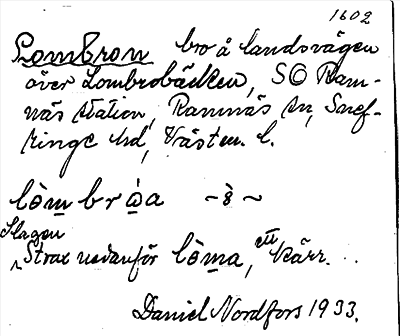 1602
Lombron bro å landsvägen
över Lombrobäcken, SO Ram-
näs station, Ramnäs sn, Snef-
ringe hd, Västm. l.
lòmbrωa ~ ~
Slagen
Strax nedanför lòma, ett kärr.
Daniel Nordfors 1933.